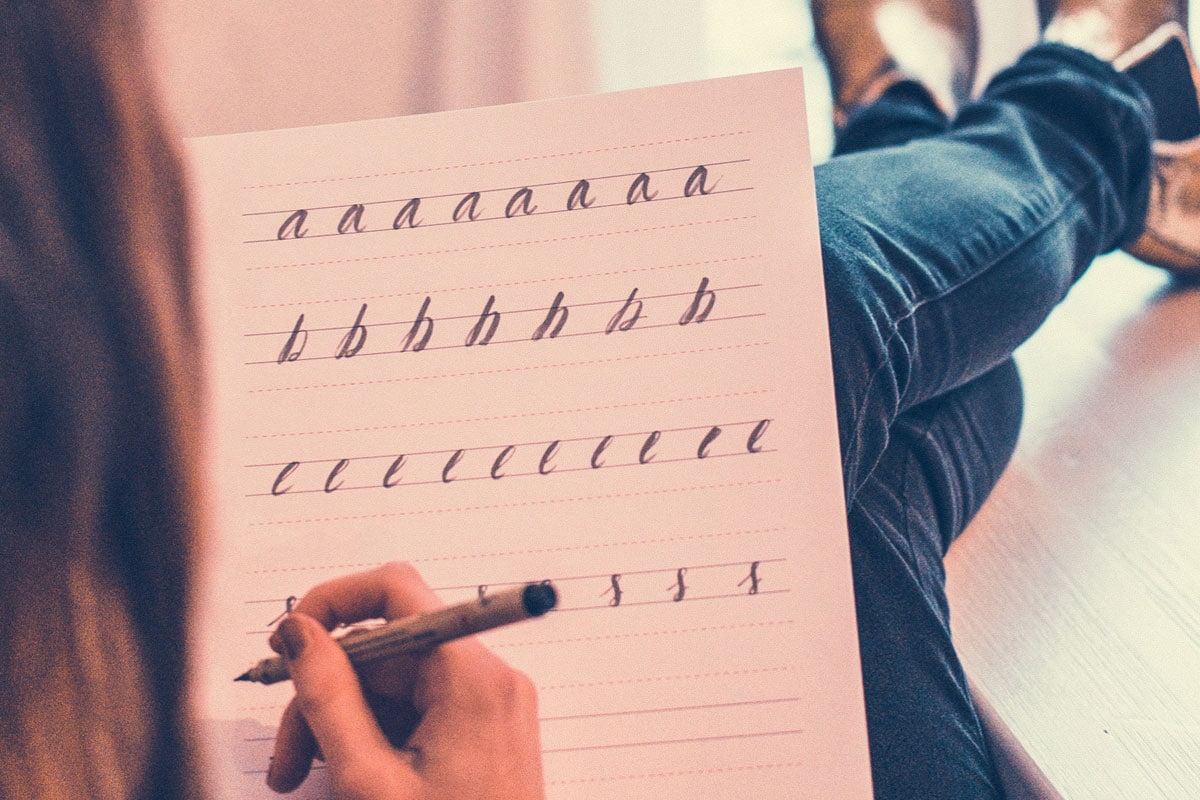 a a a a a a a a
b b b b b b b
e e e e e e e e e e
s s s